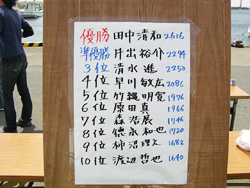 優勝 田中清和 2616
準優勝 井出裕介 2294
3位 清水進 2250
4位 早川敏広 2086
5位 竹縄明寛 1976
6位 原田真 1966
7位 森浩展 1746
8位 徳永和也 1720
9位 柳沼理文 1682
10位 渡辺哲也 1640